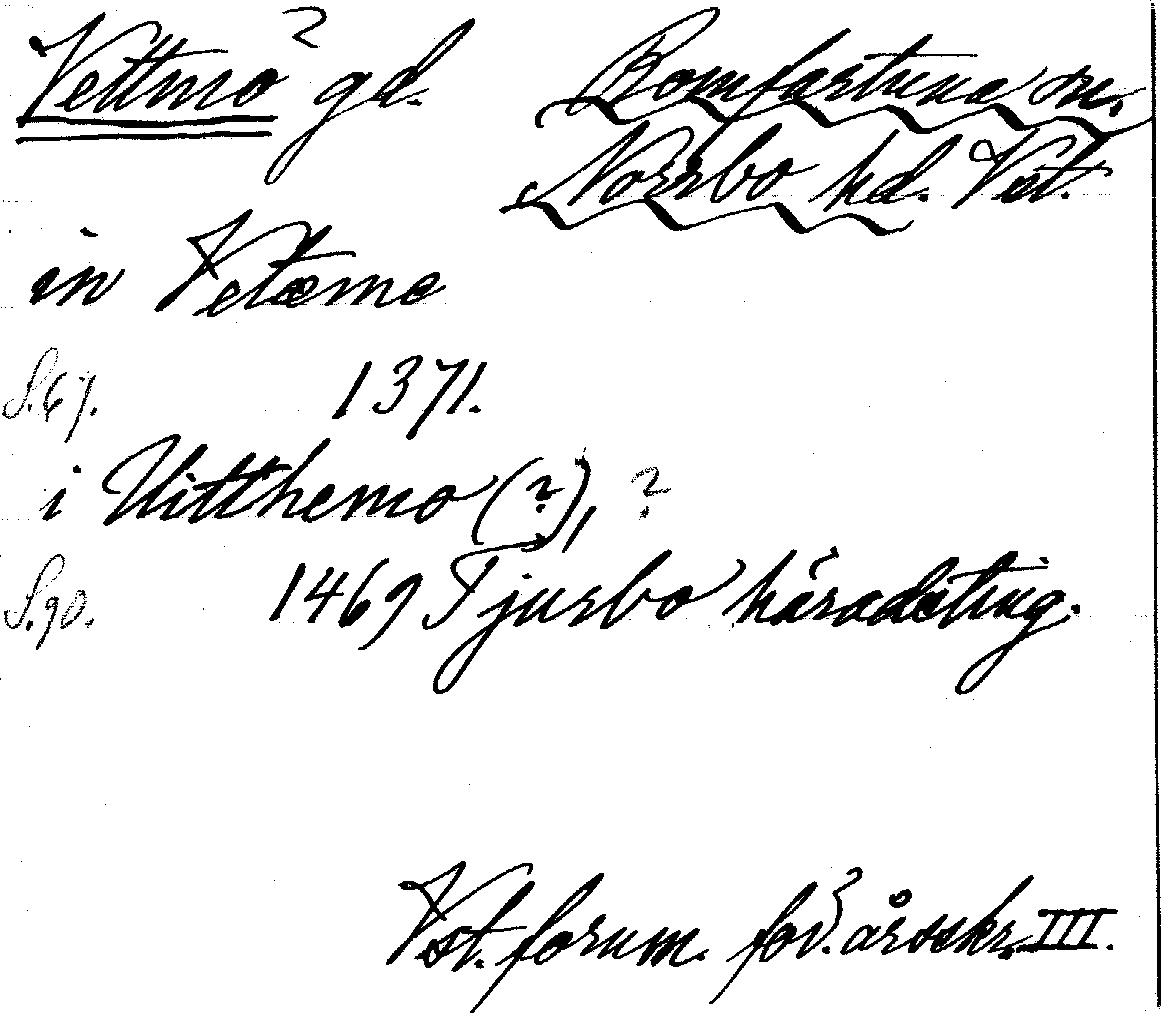 Vettmo ? gd. Romfartuna sn.
Norrbo hd. Vstl.
in Vetæmo
S. 67. 1371.
i Uitthemo (?), ?
S. 90. 1469 Tjurbo häradsting.
Vst. fornm. för. årsskr. III.